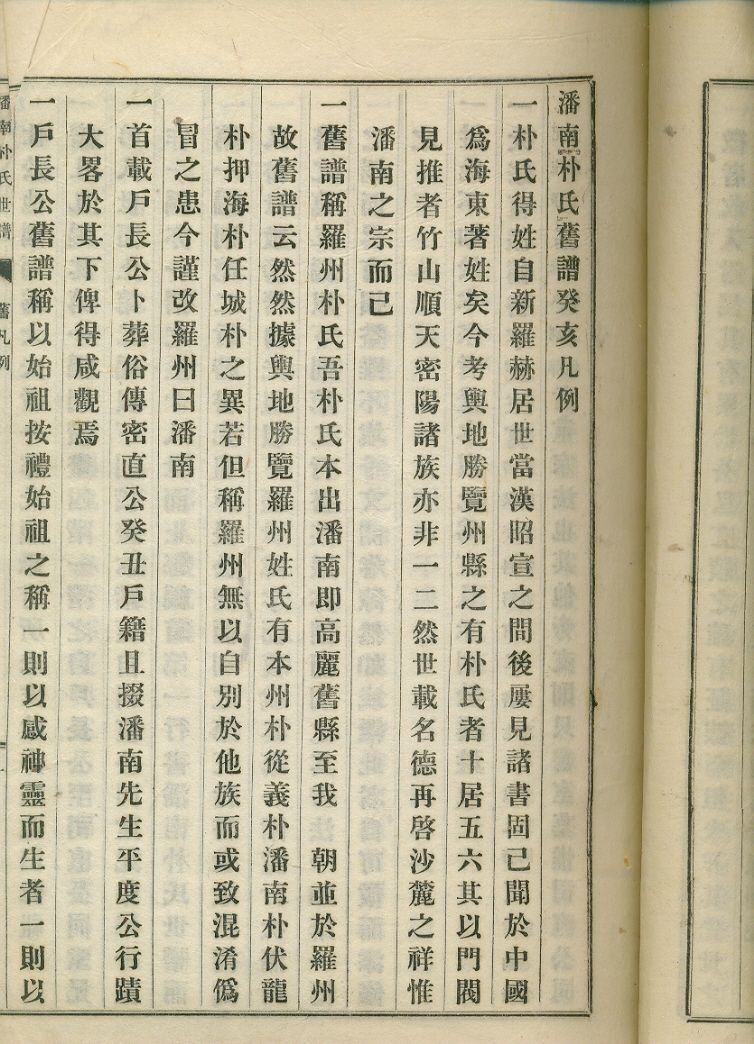 潘南朴氏舊譜癸亥凡例
一朴氏得姓自新羅赫居世當漢昭宣之間後屢見諸書固已聞於中國
爲海東著姓矣今考輿地勝覽州縣之有朴氏者十居五六其以門閥
見推者竹山順天密陽諸族亦非一二然世載名德再啓沙麓之祥惟
潘南之宗而已
一舊譜稱羅州朴氏吾朴氏本出潘南卽高麗舊縣至我　朝並於羅州
故舊譜云然然據輿地勝覽羅州姓氏有本州朴從義朴潘南朴伏龍
朴押海朴任城朴之異若但稱羅州無以自別於他族而或致混淆僞
冒之患今謹改羅州曰潘南
一首載戶長公卜葬俗傳密直公癸丑戶籍且掇潘南先生平度公行蹟
大畧於其下俾得咸觀焉
一戶長公舊譜稱以始祖按禮始祖之稱一則以感神靈而生者一則以
潘南朴氏世譜　舊凡例